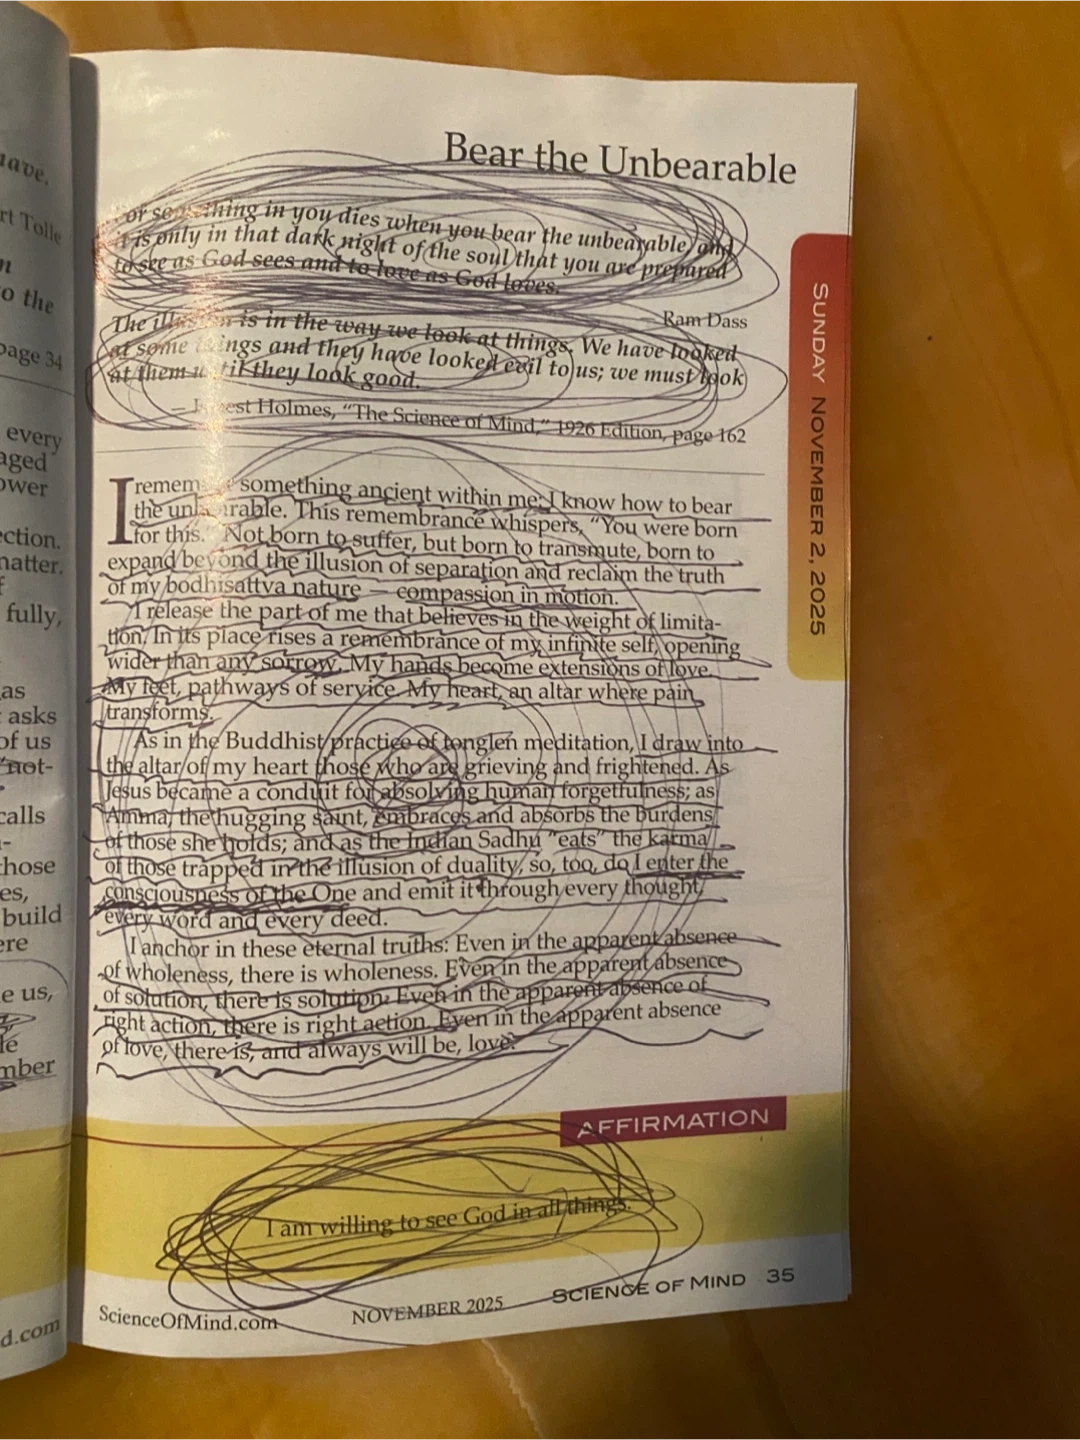 have.
rt Tolle
o the
page 34
every
aged
ower
ection.
natter.
f
fully,
as
asks
of us
"not-
calls
those
es,
build
ere
e us,
mber
d.com
Bear the Unbearable
or something in you dies when you bear the unbearable, and
it is only in that dark night of the soul that you are prepared
to see as God sees and to love as God loves.
Ram Dass
The illusion is in the way we look at things. We have looked
at some things and they have looked evil to us; we must look
at them until they look good.
– Ernest Holmes, "The Science of Mind," 1926 Edition, page 162
I remember something ancient within me: I know how to bear
the unbearable. This remembrance whispers, "You were born
for this." Not born to suffer, but born to transmute, born to
expand beyond the illusion of separation and reclaim the truth
of my bodhisattva nature — compassion in motion.
I release the part of me that believes in the weight of limita-
tion. In its place rises a remembrance of my infinite self, opening
wider than any sorrow. My hands become extensions of love.
My feet, pathways of service. My heart, an altar where pain
transforms.
As in the Buddhist practice of tonglen meditation, I draw into
the altar of my heart those who are grieving and frightened. As
Jesus became a conduit for absolving human forgetfulness; as
Amma, the hugging saint, embraces and absorbs the burdens
of those she holds; and as the Indian Sadhu "eats" the karma
of those trapped in the illusion of duality, so, too, do I enter the
consciousness of the One and emit it through every thought,
every word and every deed.
I anchor in these eternal truths: Even in the apparent absence
of wholeness, there is wholeness. Even in the apparent absence
of solution, there is solution. Even in the apparent absence of
right action, there is right action. Even in the apparent absence
of love, there is, and always will be, love.
SUNDAY NOVEMBER 2, 2025
AFFIRMATION
I am willing to see God in all things.
ScienceOfMind.com NOVEMBER 2025 SCIENCE OF MIND 35